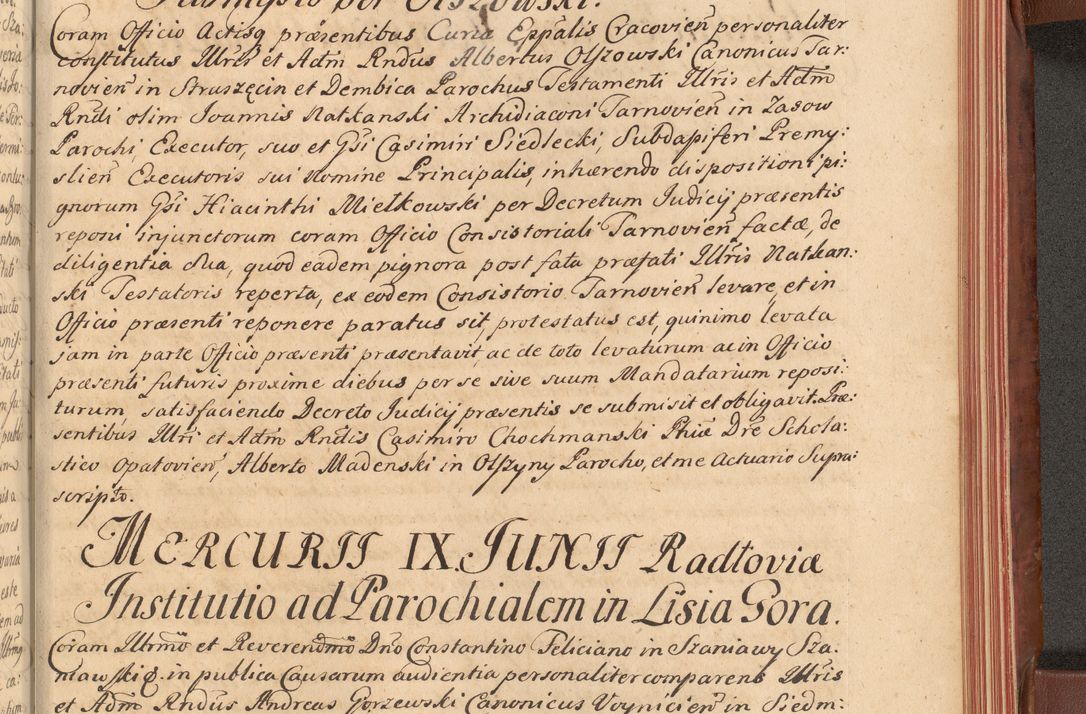 per Olszowski.
Coram Officio Actisq præsentibus Curiæ Eppalis Cracovien personaliter
constitutus Illris et Adm Rndus Albertus Olszowski Canonicus Tar:
novien in Straszęcin et Dembica Parochus Testamenti Illris et Adm
Rndi olim Joannis Natkanski Archidiaconi Tarnovien in Zasow
Parochi, Executor, suo et Gsi Casimiri Siedlecki, Subdapiferi Premy:
slien Executoris sui Nomine Principalis, inhærendo dispositioni pi:
gnorum Gsi Hiacinthi Mietkowski per Decretum Judicij præsentis
reponi injunctorum coram Officio Consistoriali Tarnovien factæ, de
diligentia sua, quod eadem pignora post fata præfati Illris Natkan:
ski Testatoris reperta, ex eodem Consistorio Tarnovien levare, et in
Officio præsenti reponere paratus sit, protestatus est, quinimo levata
jam in parte Officio præsenti præsentavit, ac de toto levaturum ac in Officio
præsenti futuris proxime diebus per se sive suum Mandatarium reposi:
turum, satisfaciendo Decreto Judicij præsentis se submisit et obligavit. Præ:
sentibus Illri et Adm Rndis Casimiro Chochmanski Phiæ Dre Schola:
stico Opatovien, Alberto Madenski in Olszyny Parocho, et me Actuario Supra:
scripto.
MERCURII IX. JUNII Radłoviæ
Institutio ad Parochialem in Lisia Gora.
Coram Illrmo et Reverendmo Dno Constantino Feliciano in Szaniawy Sza:
niawski &. in publica Causarum audientia personaliter comparens Illris
et Adm Rndus Andreas Gorzewski Canonicus Voynicien in Siedm: